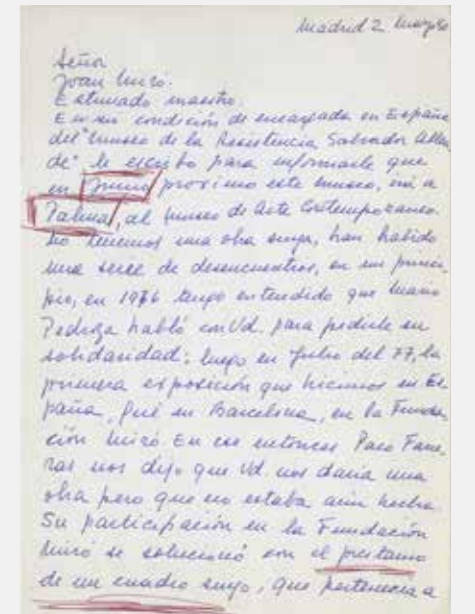 Madrid 2 Marzo
Señor
Joan Miró.
Estimado maestro.
En mi condición de encargada en España
del "museo de la Resistencia Salvador Allen
de" le escribo para informarle que
en Junio proximo este museo, irá a
Palma, al museo de Arte Contemporaneo.
No tenemos una obra suya, han habido
una serie de desencuentros, en un princi-
pio, en 1976 tengo entendido que Mario
Pedroza habló con Vd. para pedirle su
solidaridad; luego en Julio del 77, la
primera exposición que hicimos en Es
paña, fué en Barcelona, en la Funda-
ción Miró. En ese entonces Paco Farre-
ras nos dijo que Vd. nos daria una
obra pero que no estaba aún hecha.
Su participación en la Fundación
Miró se solucionó con el prestamo
de un cuadro suyo, que pertenecia a